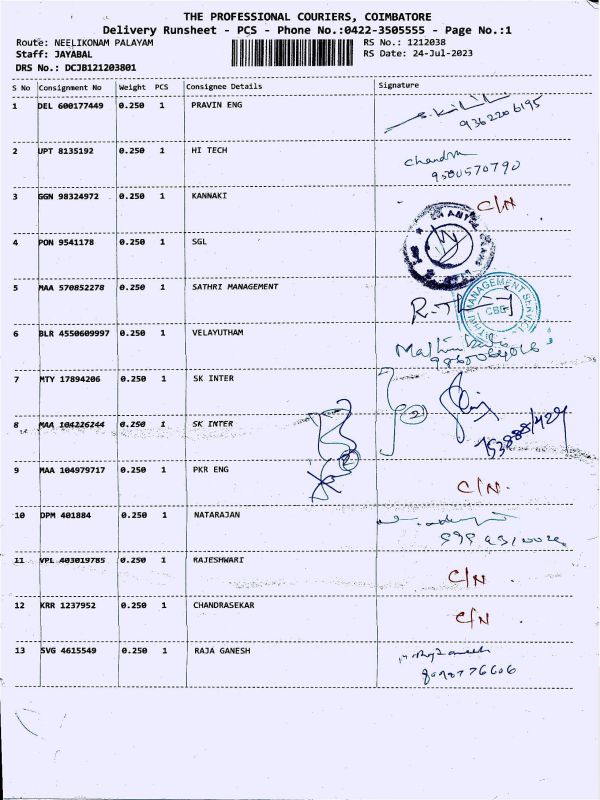 THE PROFESSIONAL COURIERS, COIMBATORE
Delivery Runsheet - PCS - Phone No.:0422-3505555 - Page No.:1
Route: NEELIKONAM PALAYAM RS No.: 1212038
Staff: JAYABAL RS Date: 24-Jul-2023
DRS No.: DCJB121203801
S No Consignment No Weight PCS Consignee Details Signature
1 DEL 600177449 0.250 1 PRAVIN ENG
9362206195
2 UPT 8135192 0.250 1 HI TECH
9500570790
3 GGN 98324972 0.250 1 KANNAKI C/N
4 PON 9541178 0.250 1 SGL
5 MAA 570852278 0.250 1 SATHRI MANAGEMENT
MANAGEMENT
CBE
6 BLR 4550609997 0.250 1 VELAYUTHAM
7 MTY 17894206 0.250 1 SK INTER
2
8 MAA 104226244 0.250 1 SK INTER
2
9 MAA 104979717 0.250 1 PKR ENG C/N.
10 DPM 401884 0.250 1 NATARAJAN
11 VPL 403019785 0.250 1 RAJESHWARI C/N
12 KRR 1237952 0.250 1 CHANDRASEKAR C/N
13 SVG 4615549 0.250 1 RAJA GANESH